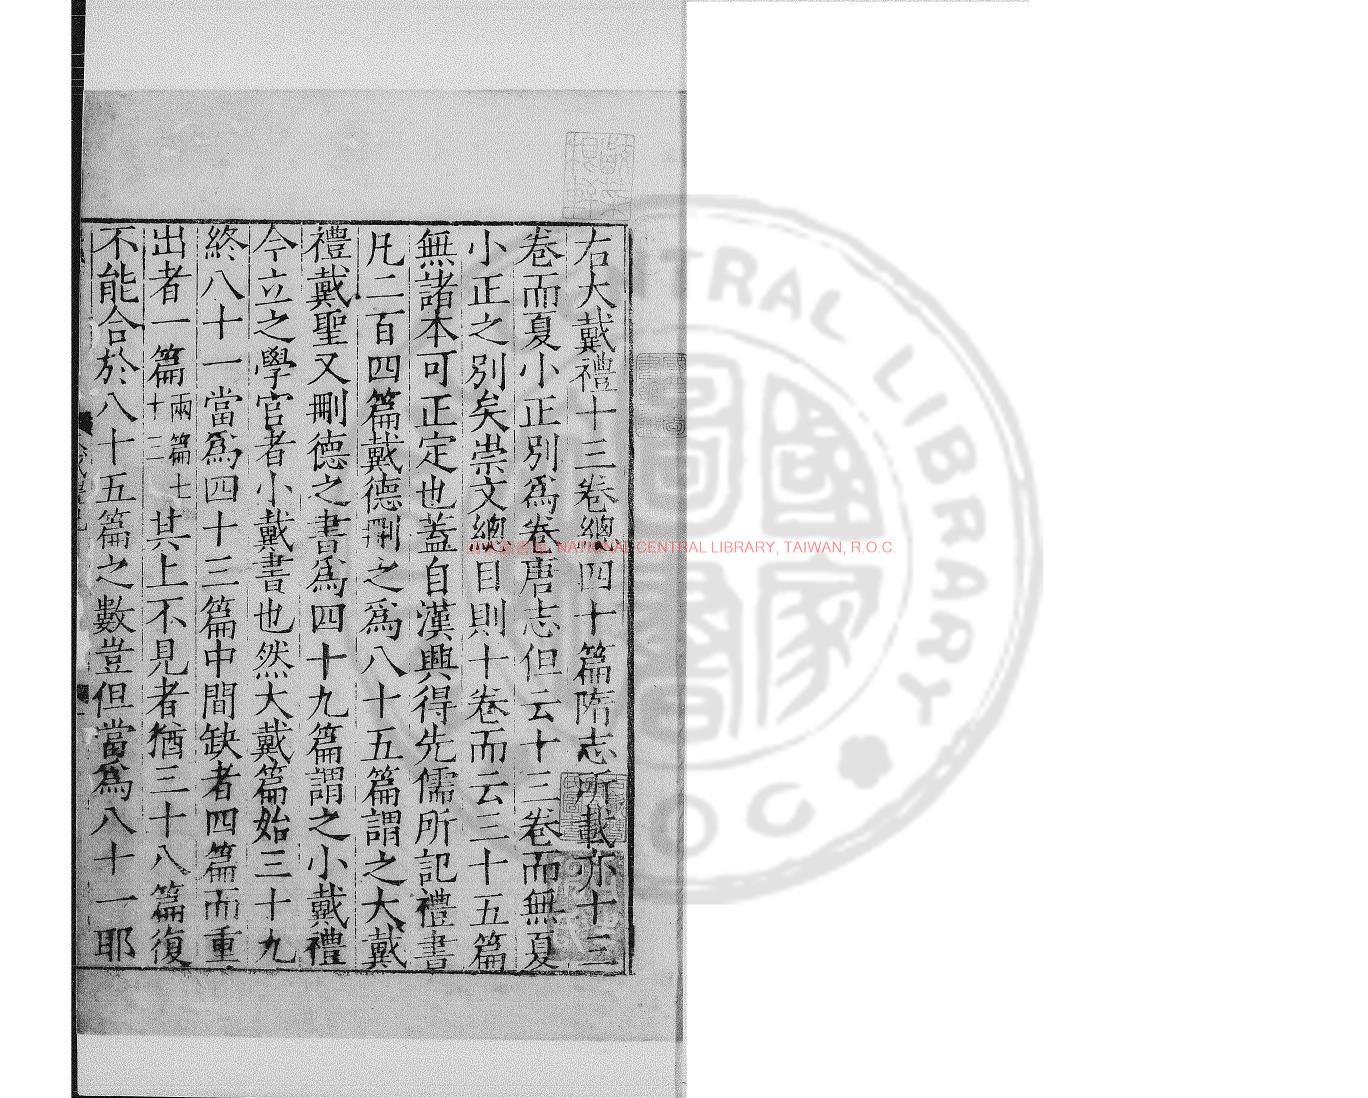 右大戴禮十三卷總四十篇隋志所載亦十三
卷而夏小正別爲卷唐志但云十三卷而無夏
小正之別矣崇文總目則十卷而云三十五篇
無諸本可正定也蓋自漢興得先儒所記禮書
凡二百四篇戴德刪之爲八十五篇謂之大戴
禮戴聖又刪德之書爲四十九篇謂之小戴禮
今立之學官者小戴書也然大戴篇始三十九
終八十一當爲四十三篇中間缺者四篇而重
出者一篇兩篇七十三其上不見者猶三十八篇復
不能合於八十五篇之數豈但當爲八十一耶
NATIONAL CENTRAL LIBRARY, TAIWAN, R.O.C.